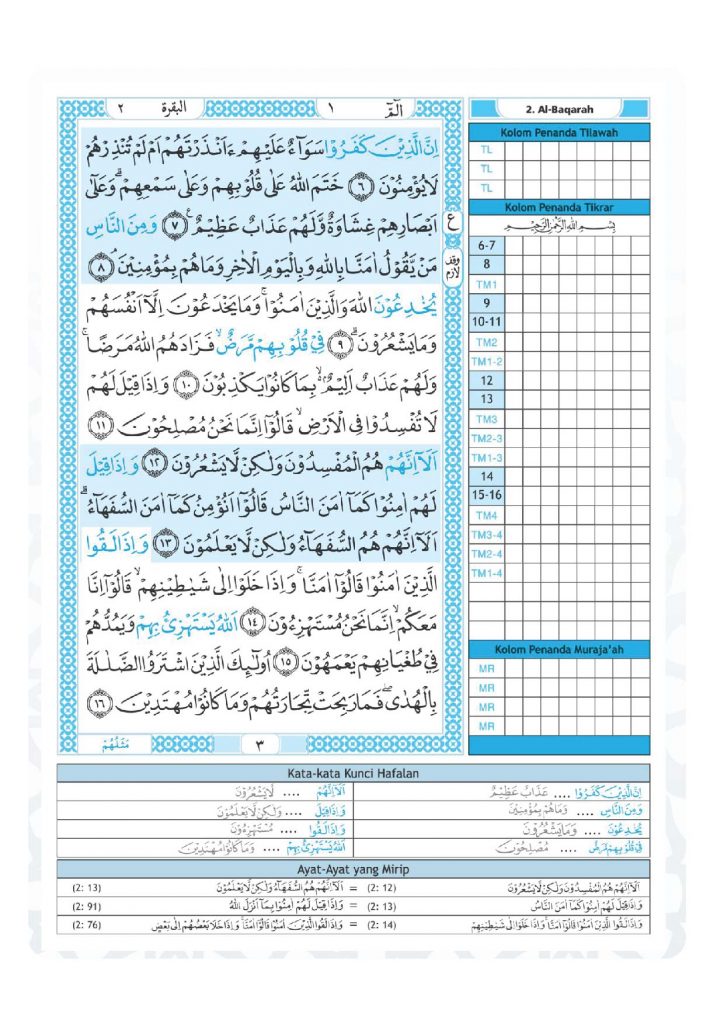 البقرة ٢
١ الٓمّٓ
2. Al-Baqarah
اِنَّ الَّذِيْنَ كَفَرُوْا سَوَاۤءٌ عَلَيْهِمْ ءَاَنْذَرْتَهُمْ اَمْ لَمْ تُنْذِرْهُمْ
لَا يُؤْمِنُوْنَ ۝٦ خَتَمَ اللّٰهُ عَلٰى قُلُوْبِهِمْ وَعَلٰى سَمْعِهِمْ ۗ وَعَلٰٓى
اَبْصَارِهِمْ غِشَاوَةٌ وَّلَهُمْ عَذَابٌ عَظِيْمٌ ࣖ ۝٧ وَمِنَ النَّاسِ
مَنْ يَّقُوْلُ اٰمَنَّا بِاللّٰهِ وَبِالْيَوْمِ الْاٰخِرِ وَمَا هُمْ بِمُؤْمِنِيْنَ ۘ ۝٨
يُخٰدِعُوْنَ اللّٰهَ وَالَّذِيْنَ اٰمَنُوْا ۚ وَمَا يَخْدَعُوْنَ اِلَّآ اَنْفُسَهُمْ
وَمَا يَشْعُرُوْنَ ۗ ۝٩ فِيْ قُلُوْبِهِمْ مَّرَضٌ ۙ فَزَادَهُمُ اللّٰهُ مَرَضًا ۚ
وَلَهُمْ عَذَابٌ اَلِيْمٌ ۢ ەۙ بِمَا كَانُوْا يَكْذِبُوْنَ ۝١٠ وَاِذَا قِيْلَ لَهُمْ
لَا تُفْسِدُوْا فِى الْاَرْضِ ۙ قَالُوْٓا اِنَّمَا نَحْنُ مُصْلِحُوْنَ ۝١١
اَلَآ اِنَّهُمْ هُمُ الْمُفْسِدُوْنَ وَلٰكِنْ لَّا يَشْعُرُوْنَ ۝١٢ وَاِذَا قِيْلَ
لَهُمْ اٰمِنُوْا كَمَآ اٰمَنَ النَّاسُ قَالُوْٓا اَنُؤْمِنُ كَمَآ اٰمَنَ السُّفَهَاۤءُ ۗ
اَلَآ اِنَّهُمْ هُمُ السُّفَهَاۤءُ وَلٰكِنْ لَّا يَعْلَمُوْنَ ۝١٣ وَاِذَا لَقُوا
الَّذِيْنَ اٰمَنُوْا قَالُوْٓا اٰمَنَّا ۚ وَاِذَا خَلَوْا اِلٰى شَيٰطِيْنِهِمْ ۙ قَالُوْٓا اِنَّا
مَعَكُمْ ۙ اِنَّمَا نَحْنُ مُسْتَهْزِءُوْنَ ۝١٤ اَللّٰهُ يَسْتَهْزِئُ بِهِمْ وَيَمُدُّهُمْ
فِيْ طُغْيَانِهِمْ يَعْمَهُوْنَ ۝١٥ اُولٰۤىِٕكَ الَّذِيْنَ اشْتَرَوُا الضَّلٰلَةَ
بِالْهُدٰى ۖ فَمَا رَبِحَتْ تِّجَارَتُهُمْ وَمَا كَانُوْا مُهْتَدِيْنَ ۝١٦
ع
وقف
لازم
٣
مَثَلُهُمْ
Kolom Penanda Tilawah
TL
TL
TL
Kolom Penanda Tikrar
بِسْمِ اللّٰهِ الرَّحْمٰنِ الرَّحِيْمِ
6-7
8
TM1
9
10-11
TM2
TM1-2
12
13
TM3
TM2-3
TM1-3
14
15-16
TM4
TM3-4
TM2-4
TM1-4
Kolom Penanda Muraja'ah
MR
MR
MR
MR
Kata-kata Kunci Hafalan
اِنَّ الَّذِيْنَ كَفَرُوْا .... عَذَابٌ عَظِيْمٌ
اَلَآ اِنَّهُمْ .... لَّا يَشْعُرُوْنَ
وَمِنَ النَّاسِ .... وَمَا هُمْ بِمُؤْمِنِيْنَ
وَاِذَا قِيْلَ .... وَلٰكِنْ لَّا يَعْلَمُوْنَ
يُخٰدِعُوْنَ .... وَمَا يَشْعُرُوْنَ
وَاِذَا لَقُوا .... مُسْتَهْزِءُوْنَ
فِيْ قُلُوْبِهِمْ مَّرَضٌ .... مُصْلِحُوْنَ
اَللّٰهُ يَسْتَهْزِئُ بِهِمْ .... وَمَا كَانُوْا مُهْتَدِيْنَ
Ayat-Ayat yang Mirip
اَلَآ اِنَّهُمْ هُمُ الْمُفْسِدُوْنَ وَلٰكِنْ لَّا يَشْعُرُوْنَ (2: 12) = اَلَآ اِنَّهُمْ هُمُ السُّفَهَاۤءُ وَلٰكِنْ لَّا يَعْلَمُوْنَ (2: 13)
وَاِذَا قِيْلَ لَهُمْ اٰمِنُوْا كَمَآ اٰمَنَ النَّاسُ (2: 13) = وَاِذَا قِيْلَ لَهُمْ اٰمِنُوْا بِمَآ اَنْزَلَ اللّٰهُ (2: 91)
وَاِذَا لَقُوا الَّذِيْنَ اٰمَنُوْا قَالُوْٓا اٰمَنَّا وَاِذَا خَلَوْا اِلٰى شَيٰطِيْنِهِمْ (2: 14) = وَاِذَا لَقُوا الَّذِيْنَ اٰمَنُوْا قَالُوْٓا اٰمَنَّا وَاِذَا خَلَا بَعْضُهُمْ اِلٰى بَعْضٍ (2: 76)